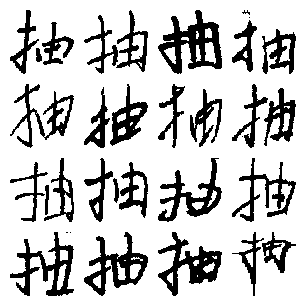 抽抽抽抽
抽抽抽抽
抽抽抽抽
抽抽抽抽